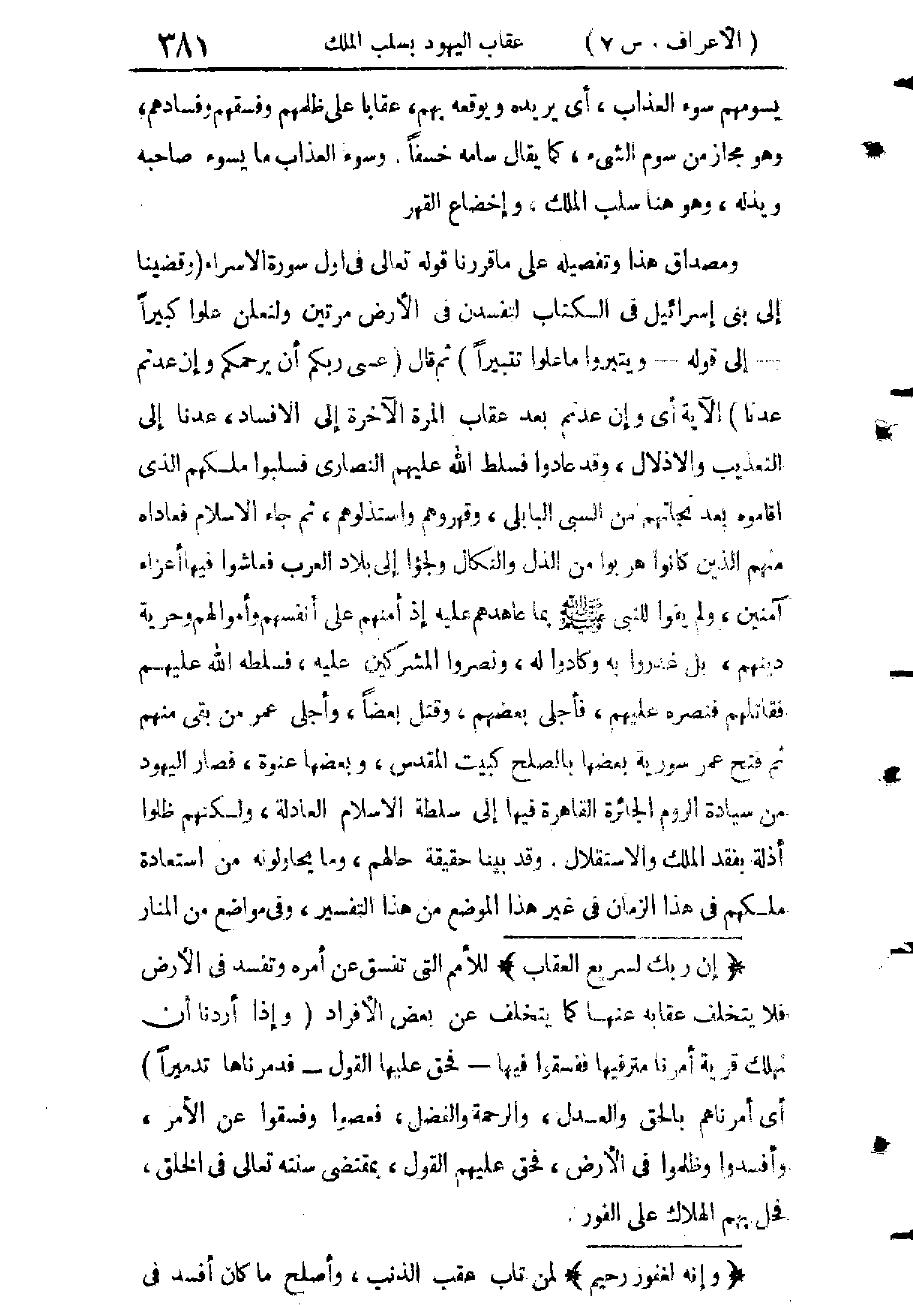 ( الأعراف . س ٧ ) عقاب اليهود بسلب الملك ٣٨١
يسومهم سوء العذاب ، أى يريده ويوقعه بهم، عقابا على ظلمهم وفسقهم وفسادهم،
وهو مجاز من سوم الشىء ، كما يقال سامه خسفاً . وسوء العذاب ما يسوء صاحبه
ويذله ، وهو هنا سلب الملك ، وإخضاع القهر
ومصداق هذا وتفصيله على ماقررنا قوله تعالى فى اول سورة الاسراء (وقضينا
إلى بنى إسرائيل فى الكتاب لتفسدن فى الأرض مرتين ولتعلن علوا كبيراً
— إلى قوله — ويتبروا ماعلوا تتبيراً ) ثم قال ( عسى ربكم أن يرحمكم وإن عدتم
عدنا ) الآية أى وإن عدتم بعد عقاب المرة الآخرة إلى الافساد، عدنا إلى
التعذيب والاذلال ، وقد عادوا فسلط الله عليهم النصارى فسلبوا ملكهم الذى
اقاموه بعد نجاتهم من السبى البابلى ، وقهروهم واستذلوهم ، ثم جاء الاسلام فعاداه
منهم الذين كانوا هربوا من الذل والنكال ولجؤا إلى بلاد العرب فعاشوا فيها أعزاء
آمنين ، ولم يفوا للنبى ﷺ بما عاهدهم عليه إذ أمنهم على أنفسهم وأموالهم وحرية
دينهم ، بل غدروا به وكادوا له ، ونصروا المشركين عليه ، فسلطه الله عليهم
فقاتلهم فنصره عليهم ، فأجلى بعضهم ، وقتل بعضاً ، وأجلى عمر من بقى منهم
ثم فتح عمر سورية بعضها بالصلح كبيت المقدس ، وبعضها عنوة ، فصار اليهود
من سيادة الروم الجائرة القاهرة فيها إلى سلطة الاسلام العادلة ، ولكنهم ظلوا
أذلة بفقد الملك والاستقلال . وقد بينا حقيقة حالهم ، وما يحاولونه من استعادة
ملكهم فى هذا الزمان فى غير هذا الموضع من هذا التفسير ، وفى مواضع من المنار
﴿ إن ربك لسريع العقاب ﴾ للأمم التى تفسق عن أمره وتفسد فى الأرض
فلا يتخلف عقابه عنها كما يتخلف عن بعض الأفراد ( وإذا أردنا أن
نهلك قرية أمرنا مترفيها ففسقوا فيها — فحق عليها القول — فدمرناها تدميراً )
أى أمرناهم بالحق والعدل ، والرحمة والفضل ، فعصوا وفسقوا عن الأمر ،
وأفسدوا وظلموا فى الأرض ، فحق عليهم القول ، بمقتضى سنته تعالى فى الخلق ،
فحل بهم الهلاك على الفور .
﴿ وإنه لغفور رحيم ﴾ لمن تاب عقب الذنب ، وأصلح ما كان أفسد فى